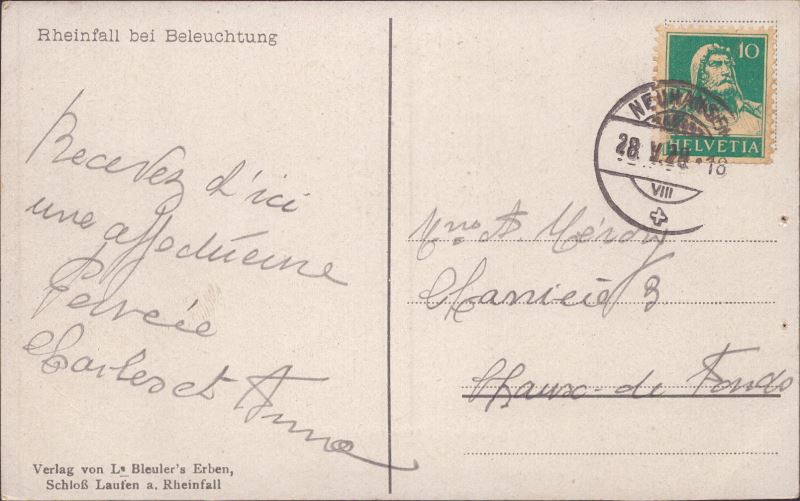 Rheinfall bei Beleuchtung
Recevez d'ici
une affectueuse
Pensée
Charles et Anna
Verlag von Ls Bleuler's Erben,
Schloß Laufen a. Rheinfall
10
HELVETIA
NEUHAUSEN
28. V. 18
VIII
Mme A.
8
Chaux-de Fonds